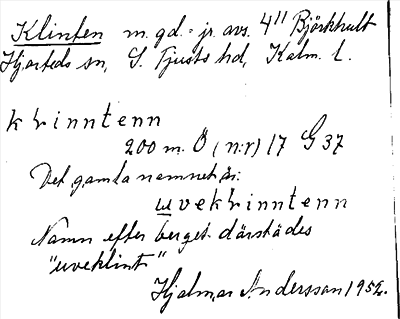 Klinten m. gd. = jr. avs. 4" Björkhult
Hjorteds sn, S. Tjusts hd, Kalm. l.
klrinntenn
200 m. Ö (n:r) 17 G 37
Det gamla namnet är:
uveklrinntenn
Namn efter berget därstädes
"uveklint"
Hjalmar Andersson 1952.